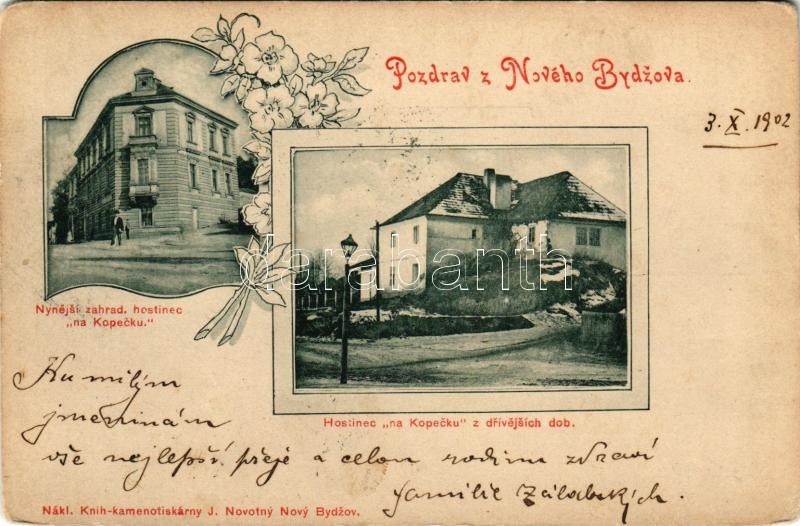 Pozdrav z Nového Bydžova.
3. X. 1902
darabanth
Nynější zahrad. hostinec
„na Kopečku.“
Hostinec „na Kopečku“ z dřívějších dob.
Ku milým
jmeninám
vše nejlepší přeje a celou rodinu zdraví
familie
Nákl. Knih-kamenotiskárny J. Novotný Nový Bydžov.